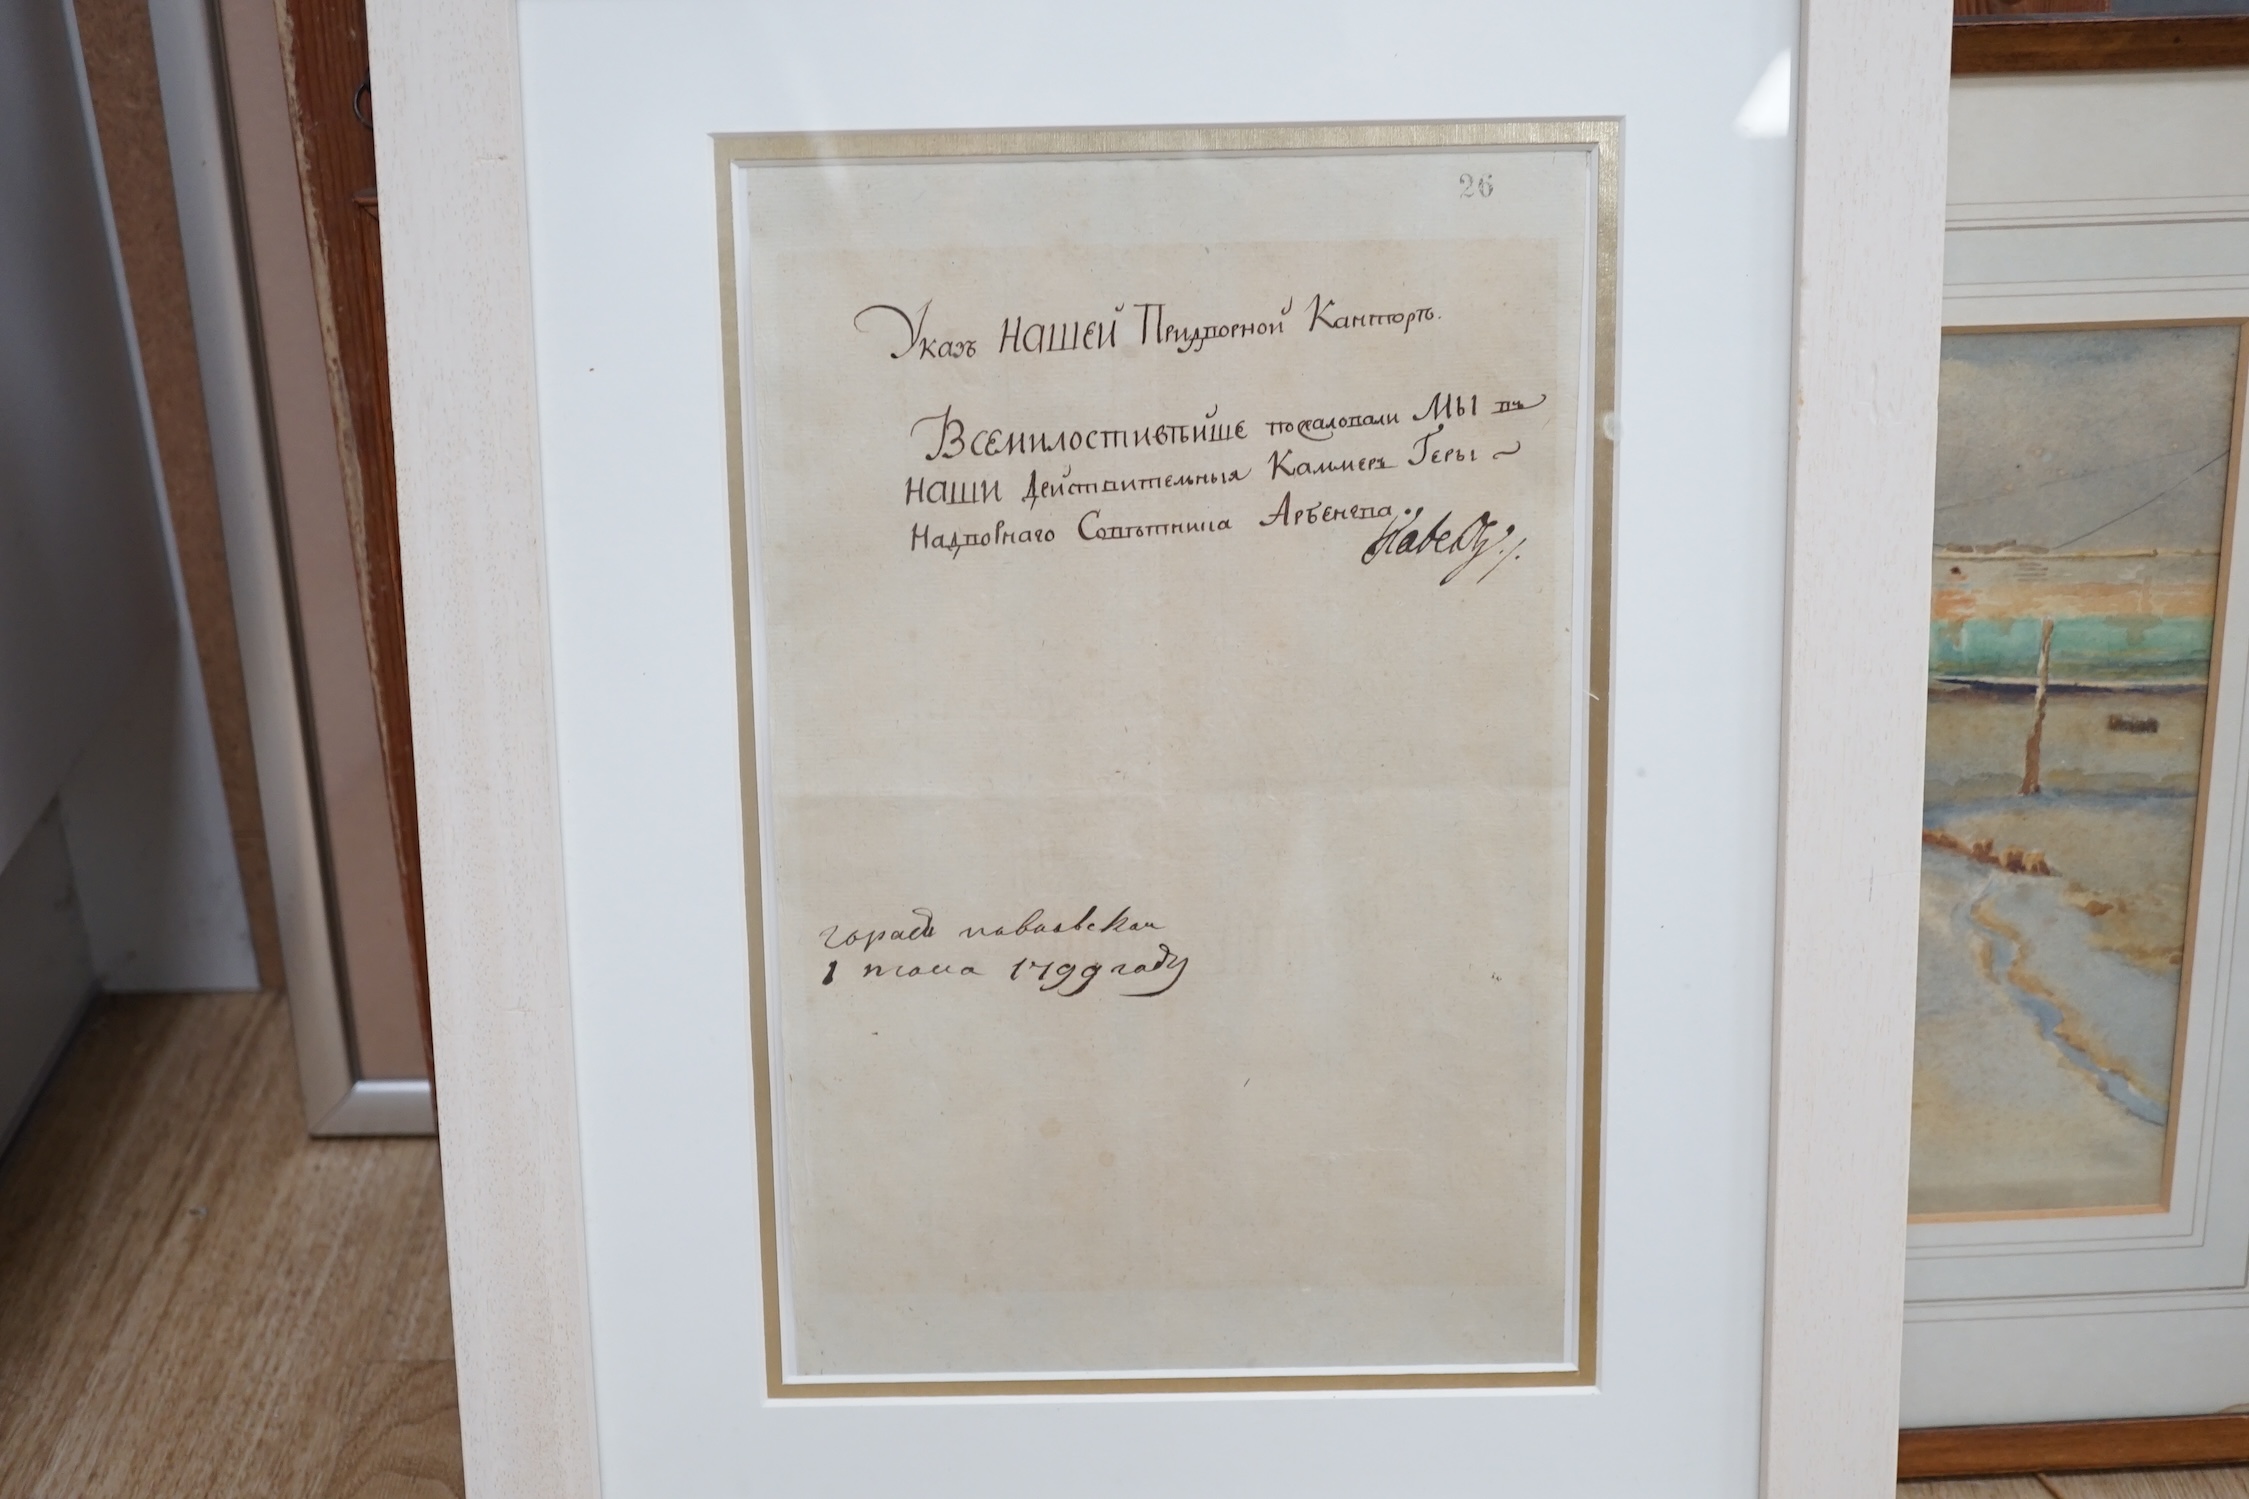 26
Указъ НАШЕЙ Придворной Канторѣ.
Всемилостивѣйше пожаловали МЫ въ
НАШИ Действительныя Каммеръ Геры
Надворнаго Совѣтника Арбенева.
Павелъ
городъ павловскъ
1 1799 году